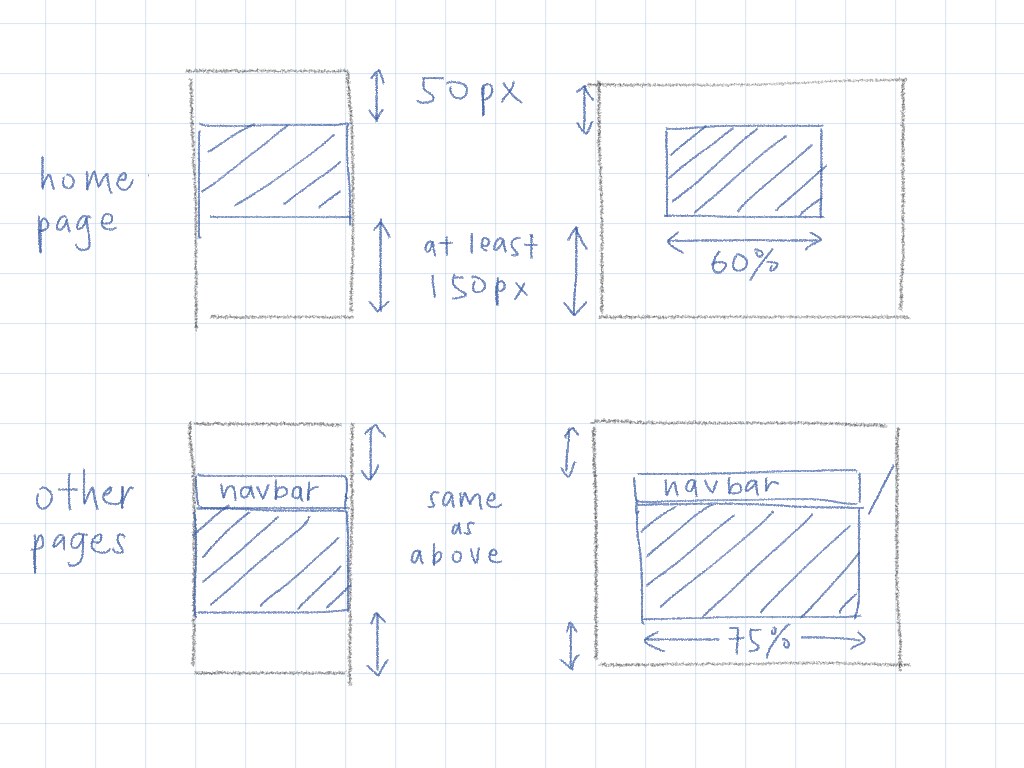 50px
home
page
at least
150px
60%
other
pages
navbar
same
as
above
navbar
75%